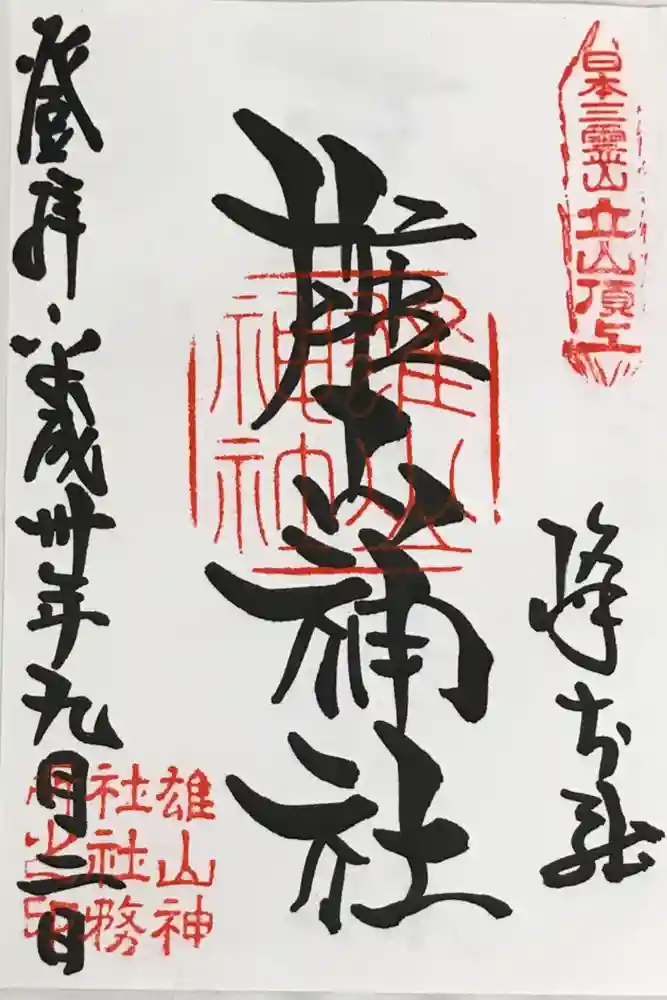 日本三靈山 立山頂上
峰本社
雄山神社
登拝 平成卅年九月二日
雄山神
社社務
所之印